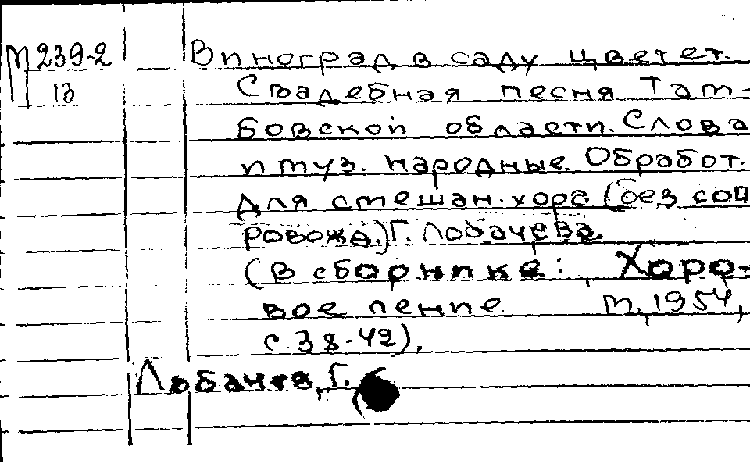 М239-2
13
Виноград в саду цветет.
Свадебная песня Там-
бовской области. Слова
и муз. народные. Обработ.
для смешан. хора (без соп
ровожд.) Г. Лобачева
(В сборнике: Хоро-
вое пение М., 1954,
с 38-42).
Лобачев, Г.